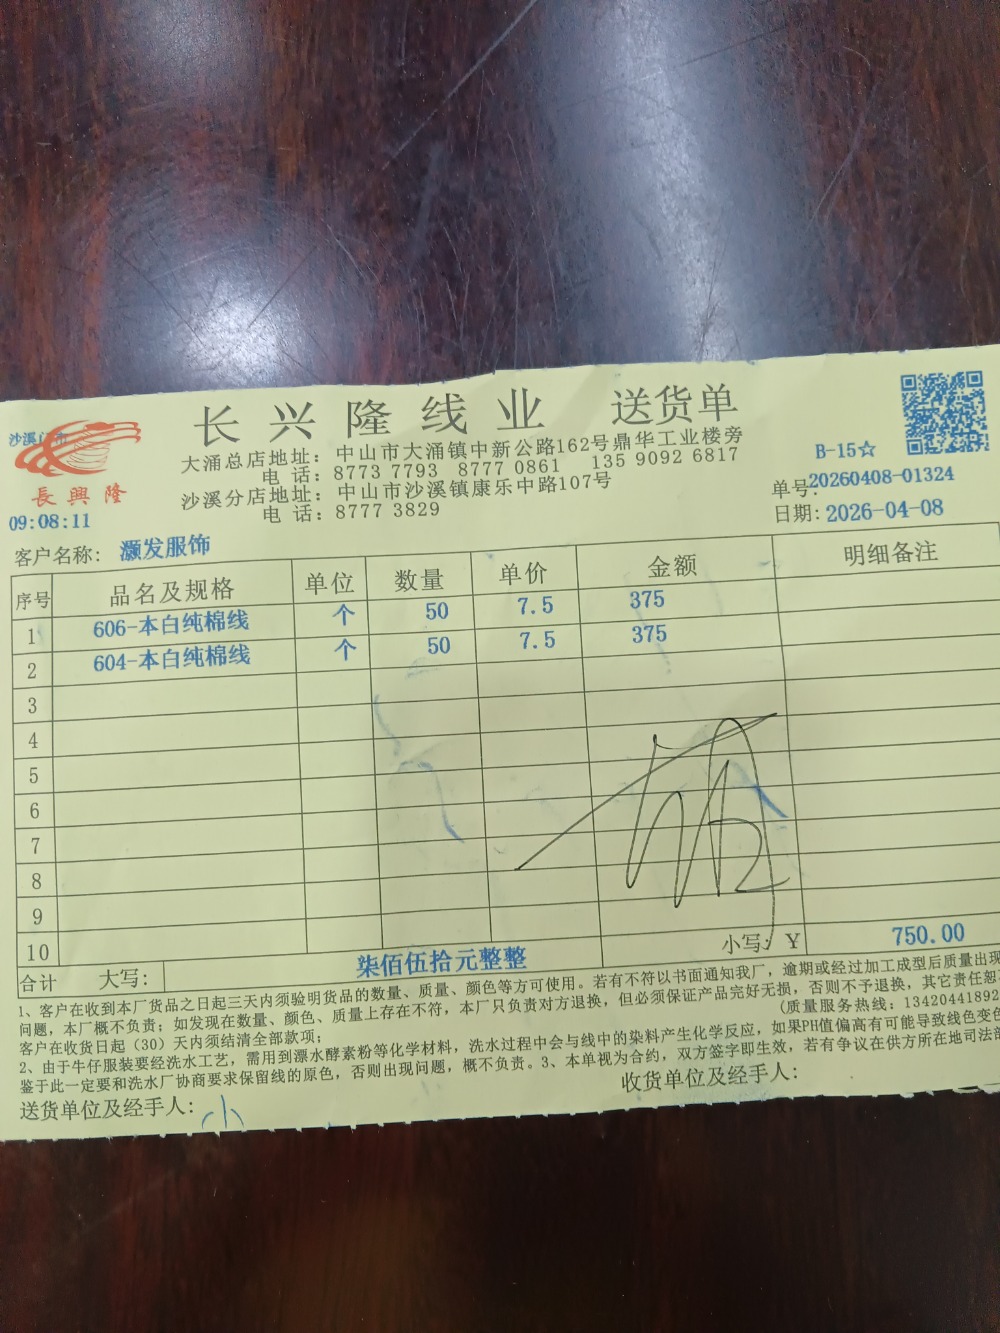 长兴隆线业 送货单
沙溪门市
長興隆
09:08:11
大涌总店地址：中山市大涌镇中新公路162号鼎华工业楼旁
电 话：8773 7793 8777 0861 135 9092 6817
沙溪分店地址：中山市沙溪镇康乐中路107号
电 话：8777 3829
B-15☆
单号:20260408-01324
日期: 2026-04-08
客户名称: 灏发服饰
序号 品名及规格 单位 数量 单价 金额 明细备注
1 606-本白纯棉线 个 50 7.5 375
2 604-本白纯棉线 个 50 7.5 375
3
4
5
6
7
8
9
10
合计 大写: 柒佰伍拾元整整 小写: ¥ 750.00
1、客户在收到本厂货品之日起三天内须验明货品的数量、质量、颜色等方可使用。若有不符以书面通知我厂，逾期或经过加工成型后质量出现
问题，本厂概不负责；如发现在数量、颜色、质量上存在不符，本厂只负责对方退换，但必须保证产品完好无损，否则不予退换，其它责任恕
客户在收货日起（30）天内须结清全部款项； (质量服务热线：13420441892
2、由于牛仔服装要经洗水工艺，需用到漂水酵素粉等化学材料，洗水过程中会与线中的染料产生化学反应，如果PH值偏高有可能导致线色变色
鉴于此一定要和洗水厂协商要求保留线的原色，否则出现问题，概不负责。3、本单视为合约，双方签字即生效，若有争议在供方所在地司法部
送货单位及经手人: 小 收货单位及经手人: